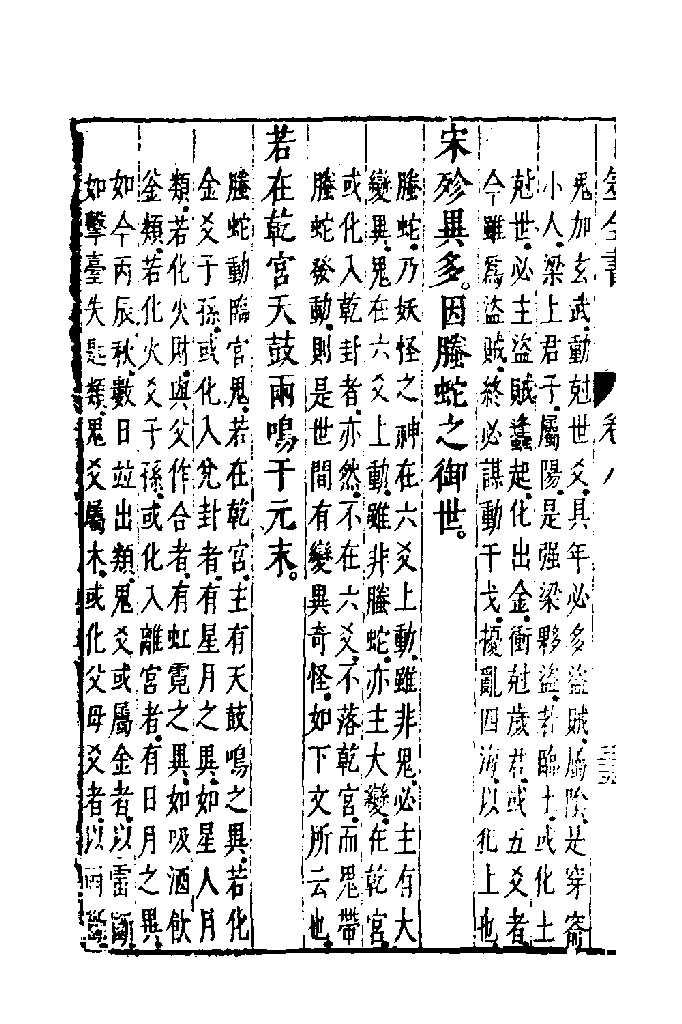 鬼加玄武動尅世爻其年必多盜賊屬陰是穿窬
小人梁上君子屬陽是强梁夥盜若臨土或化土
尅世必主盜賊蠭起化出金衝尅歲君或五爻者
今雖爲盜賊終必謀動干戈擾亂四海以犯上也
宋殄異多。因螣蛇之御世。
螣蛇乃妖怪之神在六爻上動雖非鬼必主有大
變異鬼在六爻上動雖非螣蛇亦主大變在乾宮
或化入乾卦者亦然不在六爻不落乾宮而鬼帶
螣蛇發動則是世間有變異奇怪如下文所云也
若在乾宮天鼓兩鳴于元末。
螣蛇動臨官鬼若在乾宮主有天鼓鳴之異若化
金爻子孫或化入兌卦者有星月之異如星入月
類若化火財與父作合者有虹霓之異如吸酒飲
釜類若化火爻子孫或化入離宮者有日月之異
如今丙辰秋數日竝出類鬼爻或屬金者以雷斷
如擊臺失匙類鬼爻屬木或化父母爻者以雨斷